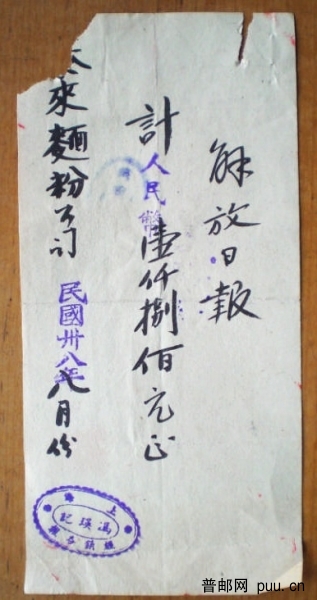 解放日報
計人民幣壹仟捌佰元正
來麵粉公司 民國卅八年八月份
上海
馮瑛記
普邮网 puu.cn